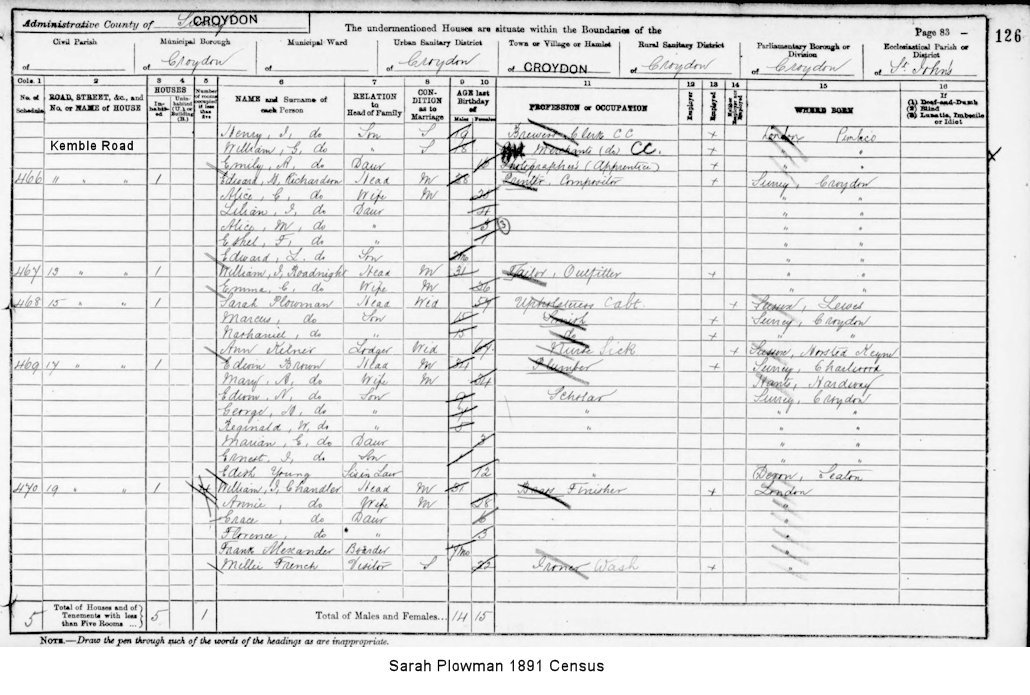 Administrative County of Surrey CROYDON
The undermentioned Houses are situate within the Boundaries of the
Page 83 126
Civil Parish Municipal Borough Municipal Ward Urban Sanitary District Town or Village or Hamlet Rural Sanitary District Parliamentary Borough or Division Ecclesiastical Parish or District
of of Croydon of of Croydon of CROYDON of Croydon of Croydon of St. John's
Cols. 1 2 3 4 5 6 7 8 9 10 11 12 13 14 15 16
No. of Schedule ROAD, STREET, &c., and No. or NAME of HOUSE HOUSES Inhabited Uninhabited (U.) or Building (B.) Number of rooms occupied if less than five NAME and Surname of each Person RELATION to Head of Family CONDITION as to Marriage AGE last Birthday of Males Females PROFESSION or OCCUPATION Employer Employed WHERE BORN If (1) Deaf-and-Dumb (2) Blind (3) Lunatic, Imbecile or Idiot
Henry, J, do Son S 19 Brewers Clerk CC + London Pimlico
Kemble Road William, G, do " S 18 Merchants (do) CC. + " "
Emily, A, do Daur Photographers (Apprentice) + " "
466 " " 1 Edward, Richardson Head M 28 Printer, Compositor + Surrey, Croydon
Alice, E, do Wife M " "
Lilian, I, do Daur 4 " "
Alice, M, do " 3 " "
Ethel, F, do " 1 " "
Edward, L. do Son " "
467 13 " " 1 William, J, Roadnight Head M 31 Tailor, Outfitter + " "
Emma, E, do Wife M 26 " "
468 15 " " 1 Sarah Plowman Head Wid 57 Upholstress Cabt. + Sussex, Lewes
Marcus, do Son Smith + Surrey, Croydon
Nathaniel, do " 15 do + " "
Ann Kilner Lodger Wid 67 Nurse Sick + Sussex, Horsted Keyne
469 17 " " 1 Edwin Brown Head M 34 Plumber + Surrey, Charlwood
Mary, A, do Wife M 34 Hants, Hardway
Edwin, N, do Son 9 Scholar Surrey, Croydon
George, A, do " 7 " " "
Reginald, W, do " 5 " " "
Marian, E, do Daur 3 " "
Ernest, J, do Son 1 " "
Edith Young Sis in Law 12 " Devon, Seaton
470 19 " " 1 4 William, J, Chandler Head M 31 Brass Finisher + London
Annie, do Wife M 28 "
Grace, do Daur 6 "
Florence, do " 3 "
Frank Alexander Boarder 7mo "
Millie French Visitor S 22 Ironer Wash + "
5 Total of Houses and of Tenements with less than Five Rooms ... 5 1 Total of Males and Females... 14 15
NOTE.—Draw the pen through such of the words of the headings as are inappropriate.
Sarah Plowman 1891 Census